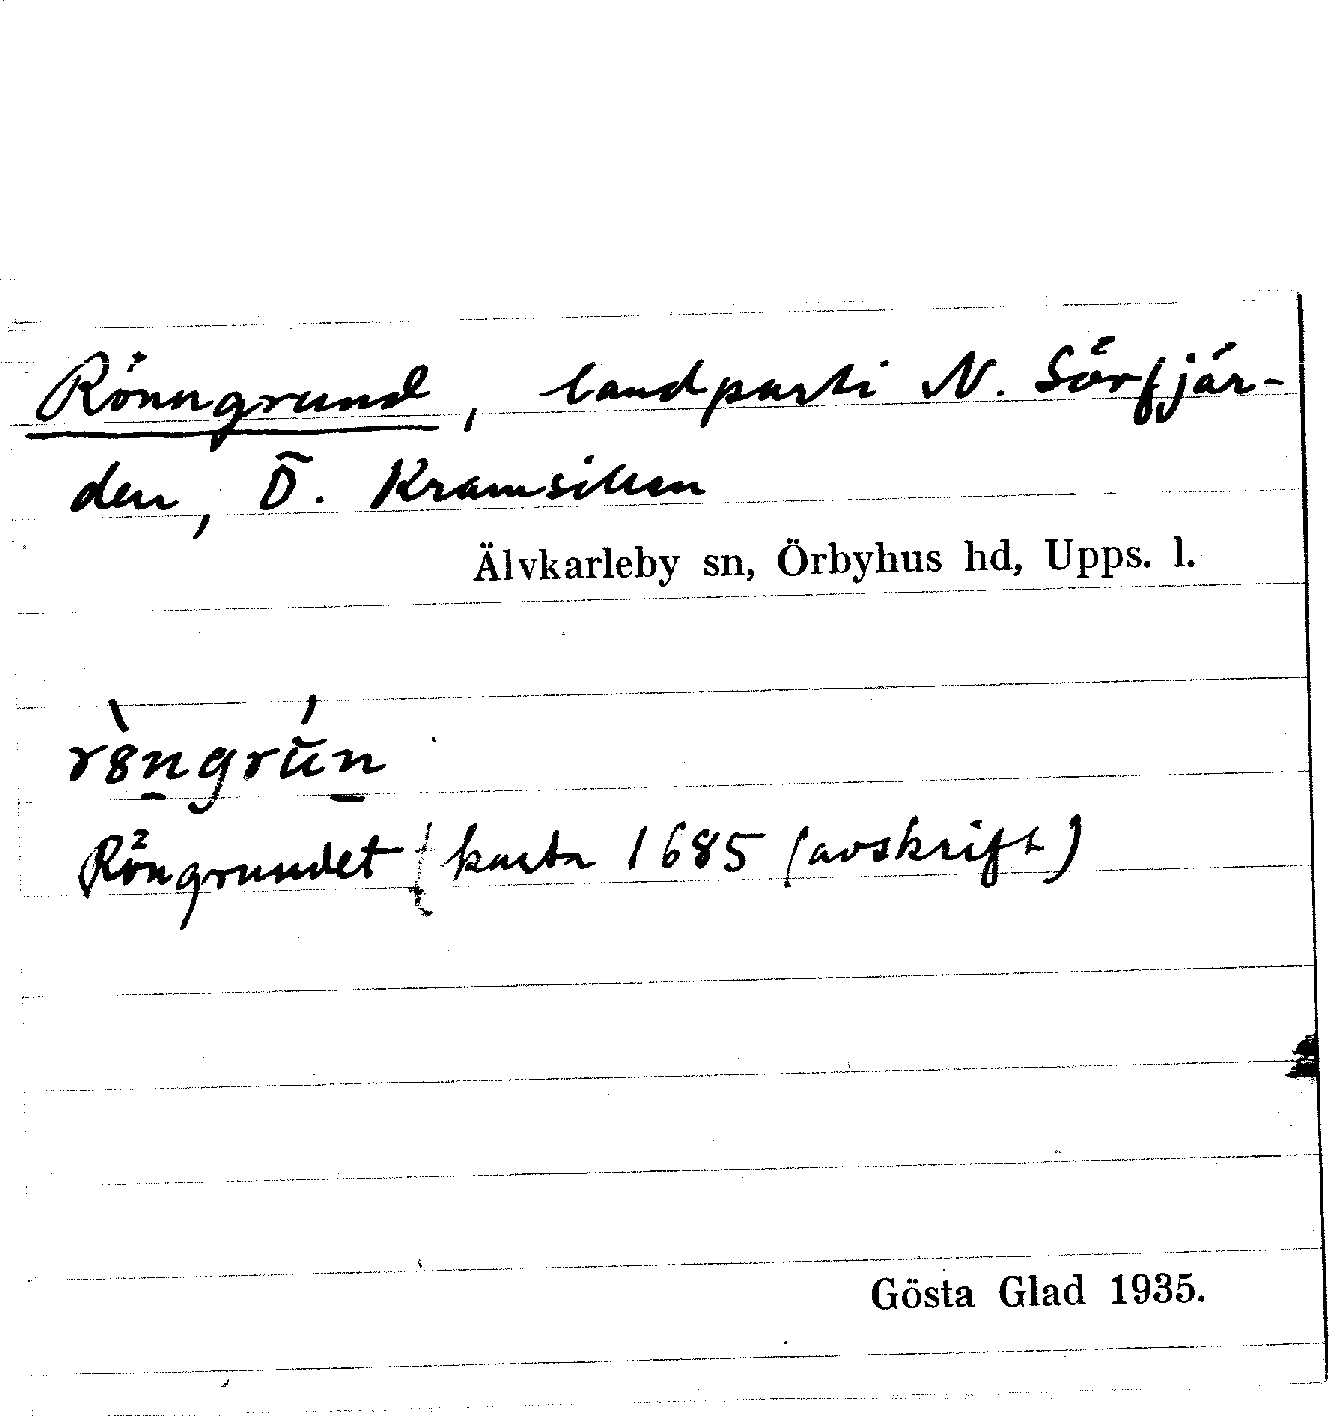 Rönngrund, landparti N. Sörfjär-
den, Ö. Kramsiken
Älvkarleby sn, Örbyhus hd, Upps. l.
r8̀n̠grŭ́n̠
Röngrundet karta 1685 (avskrift)
Gösta Glad 1935.